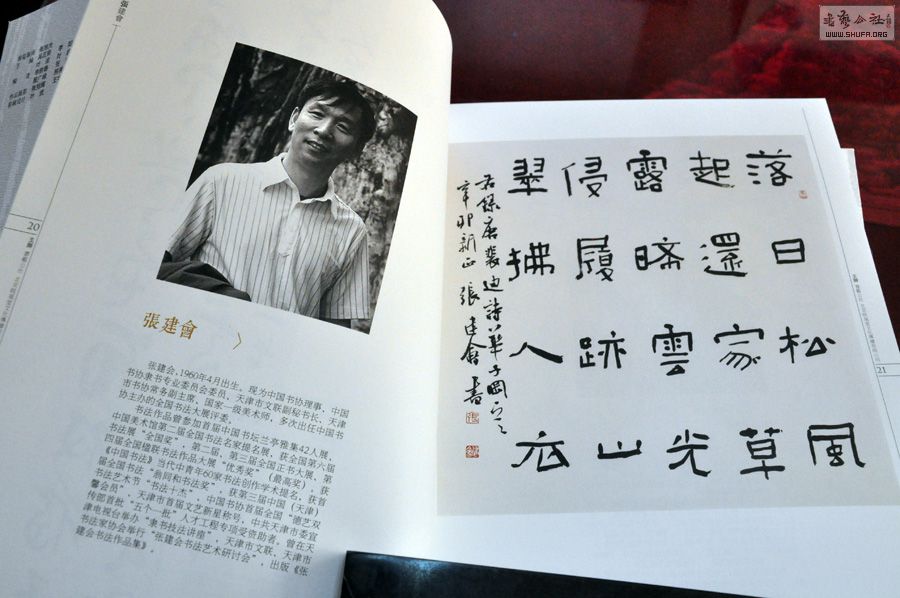 書艺公社
WWW.SHUFA.ORG
張建會
20
張建會
张建会，1960年4月出生。现为中国书协理事，中国
书协隶书专业委员会委员，天津市文联副秘书长，天津
市书协常务副主席，国家一级美术师，多次出任中国书
协主办的全国书法大展评委。
书法作品曾参加首届中国书坛兰亭雅集42人展、
中国美术馆第二届全国书法名家提名展、获全国第六届
书法展“全国奖”，第二届、第三届全国正书大展、第
四届全国楹联书法作品大展“优秀奖”（最高奖），获
《中国书法》当代中青年60家书法创作学术提名，获首
届全国书法“翁同和书法奖”，获第三届中国（天津）
书法艺术节“书法十杰”，中国书协首届全国“德艺双
馨会员”，天津市首届文艺新星称号，中共天津市委宣
传部首批“五个一批”人才工程专项受资助者。曾在天
津电视台举办“隶书技法讲座”，天津市文联、天津市
书法家协会举行“张建会书法艺术研讨会”，出版《张
建会书法作品集》。
落日松風
起還家草
露晞雲光
侵履跡山
翠拂人衣
右録唐裴迪詩華子岡一首
辛卯新正張建會書
21